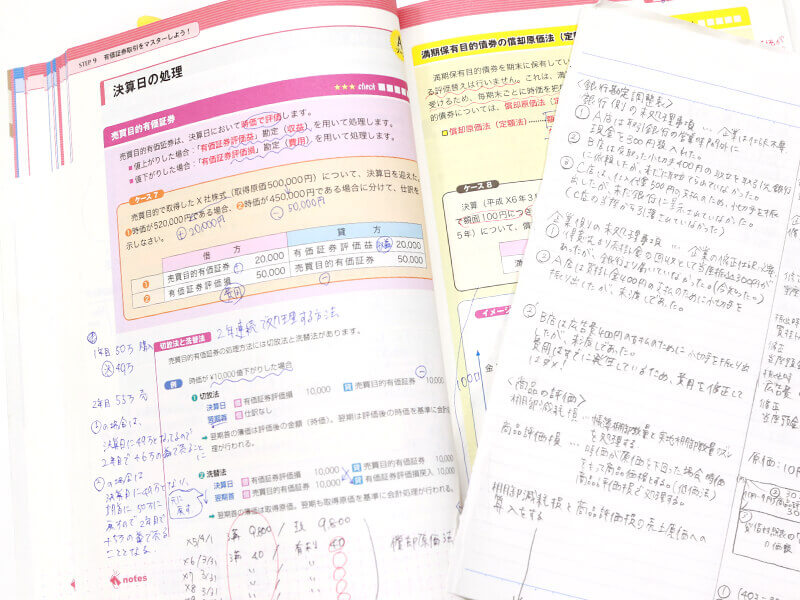 STEP 9 有価証券取引をマスターしよう!
決算日の処理
★★★ check
売買目的有価証券
売買目的有価証券は、決算日において時価で評価します。
■値上がりした場合:「有価証券評価益」勘定(収益)を用いて処理します。
■値下がりした場合:「有価証券評価損」勘定(費用)を用いて処理します。
ケース 7
売買目的で取得したX社株式(取得原価500,000円)について、決算日を迎えた。
①時価が520,000円である場合、②時価が450,000円である場合に分けて、仕訳を
示しなさい。
⊕ 20,000円
⊖ 50,000円
借方 貸方
① 売買目的有価証券 20,000 有価証券評価益 20,000
② 有価証券評価損 50,000 売買目的有価証券 50,000
費用
2年連続で処理する方法
切放法と洗替法
売買目的有価証券の処理方法には切放法と洗替法があります。
例 時価が¥10,000値下がりした場合
❶切放法
決算日 借 有価証券評価損 10,000 貸 売買目的有価証券 10,000
翌期首 借 仕訳なし
➡ 翌期首の簿価は評価後の金額(時価)。翌期は評価後の時価を基準に会計
理が行われる。
❷洗替法
決算日 借 有価証券評価損 10,000 貸 売買目的有価証券 10,000
翌期首 借 売買目的有価証券 10,000 貸 有価証券評価損戻入 10,000
➡ 翌期首の簿価は取得原価。翌期も取得原価を基準に会計処理が行われる。
1年目 50万 購入
49万
2年目 53万 売
①の場合は、
決算日に49万となってるので
②の場合は
決算日に49万となり、
期首に50万に
戻すので2年目で
こととなる。
元に戻す
X5/4/1 満 9,800 / 現 9,800
X6/3/31 満 40 / 有利 40
X7 3/31 〃 〃
X8 3/31 〃 〃
償却原価法
notes
満期保有目的債券の償却原価法(定
満期保有目的の債券を期末に保有してい
る評価替えは行いません。これは、満
受けるため、毎期末ごとに時価を把
的債券については、償却原価法(定
■償却原価法(定額法)
ケース 8
決算(平成X6年3
で額面100円につ
5年)について、償
イメージ
金額
<銀行勘定調整表>
銀行側の未処理事項 … 企業は仕訳不要
① A店は取引銀行の営業時間外に
現金を500円預入れた。
② B店は受取った小切手400円の取立を取引銀行
に依頼したが、未だ取立てられていなかった。
③ C店は、仕入代金500円の支払のため、小切手を振
出したが、未だ銀行に呈示されていなかった。
(C店の当座から引落されていなかった)
企業側の未処理事項 … 企業の修正仕訳必要
① 得意先より売掛金の回収として当座振込300円が
あったが、銀行より届いていなかった。
② A店は買掛金400円の支払のために小切手を
振り出したが、未渡しであった。
③ B店は広告費600円の支払のために小切手を振り出
したが、未渡しであった。
費用はすでに発生しているため、費用を修正して
はダメ!
<商品の評価>
棚卸減耗損 … 帳簿棚卸数量と実地棚卸数量のズレ
を処理する
商品評価損 … 時価が原価を下回った場合 時価
をもって商品価値とする。(低価法)
商品評価損と処理する。
棚卸減耗損と商品評価損の売上原価への
算入をする
修正
当座預金
広告費
修正
当座預金
原価:10